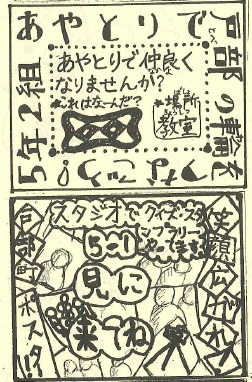 あやとりで
戸部の輪を
つなごう。
5年2組
あやとりで仲良く
なりませんか?
これはなーんだ?
場所
教室
スタジオでクイズ・スタ
ンプラリー
やってます
5の1
見に
来てね
笑顔伝われ!
戸部町ポスト